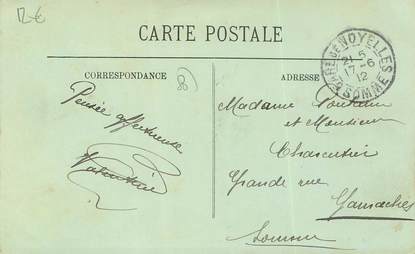 12 €
CARTE POSTALE
CORRESPONDANCE
ADRESSE
GARE DE NOYELLES
21 5
17-6
12
SOMME
Pensée affectueuse
Madame
et Monsieur
Charcutier
Grande rue
Gamaches
Somme